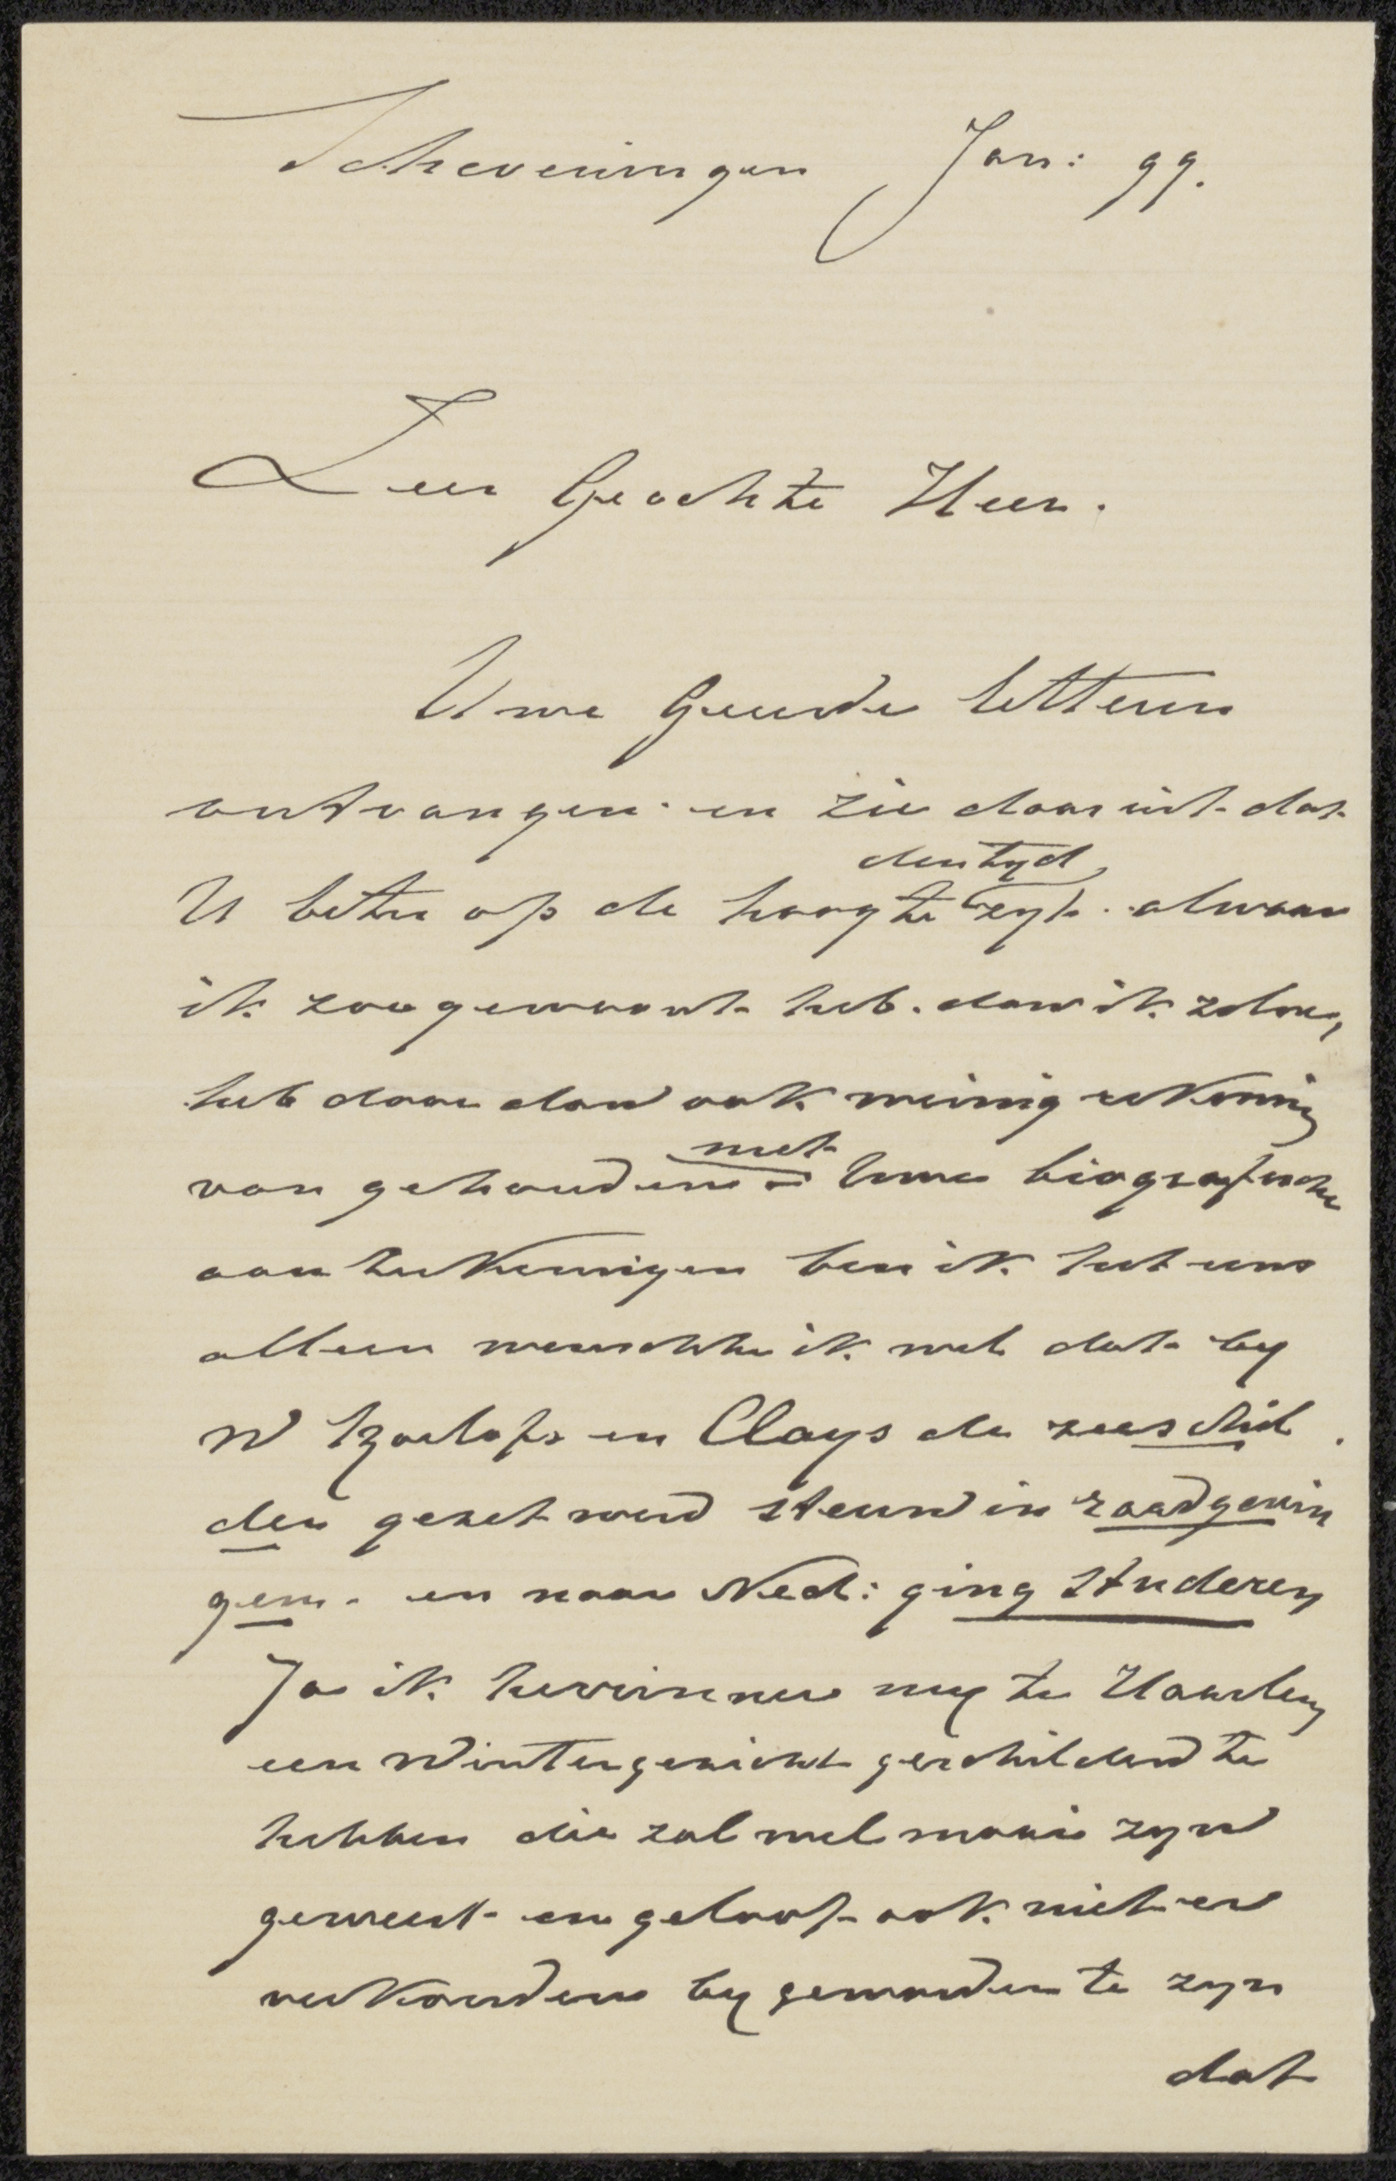 Scheveningen Jan: 99.
Zeer Geachte Heer.
Uwe Geeerde letteren
ontvangen en zie daar uit dat
den tyd
U beter op de hoogte zyt. alwaar
ik zoo gewoont heb. dan ik zelve,
heb daar dan ook weinig rekening
met
van gehouden Uwe biografische
aanteekeningen ben ik het eens
alleen wenschte ik wel dat by
W Roelofs en Clays de zeeschil
der gezet werd steund in raadgevin
gen. en naar Ned: ging studeren
Ja ik herinner my te Haarlem
een Wintergezicht geschilderd te
hebben die zal wel mooi zyn
geweest en geloof ook niet er
verkouden by geworden te zyn
dat